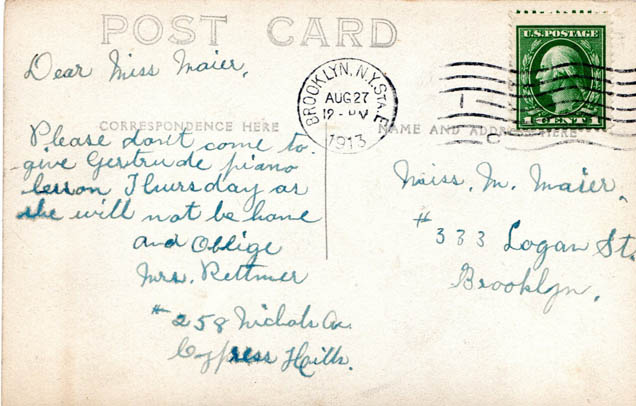 POST CARD
U.S. POSTAGE
1 CENT 1
BROOKLYN, N.Y. STA. E
AUG 27
12 - PM
1913
Dear Miss Maier,
CORRESPONDENCE HERE
NAME AND ADDRESS HERE
Please don't come to
give Gertrude piano
lesson Thursday as
she will not be home
and Oblige
Mrs. Rettmer
#258 Nichols Av.
Cypress Hills.
Miss. M. Maier.
#333 Logan St.
Brooklyn.